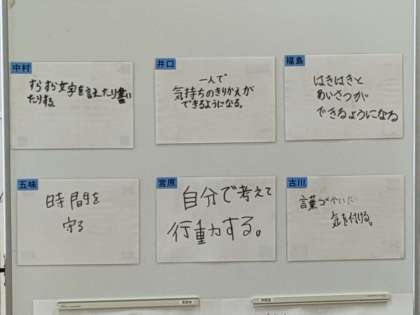 中村
すらすら文字を言えたり書い
たりする
井口
一人で
気持ちのきりかえが
できるようになる。
福島
はきはきと
あいさつが
できるようになる
五味
時間を
守る
宮原
自分で考えて
行動する。
古川
言葉づかいに
気を付ける。